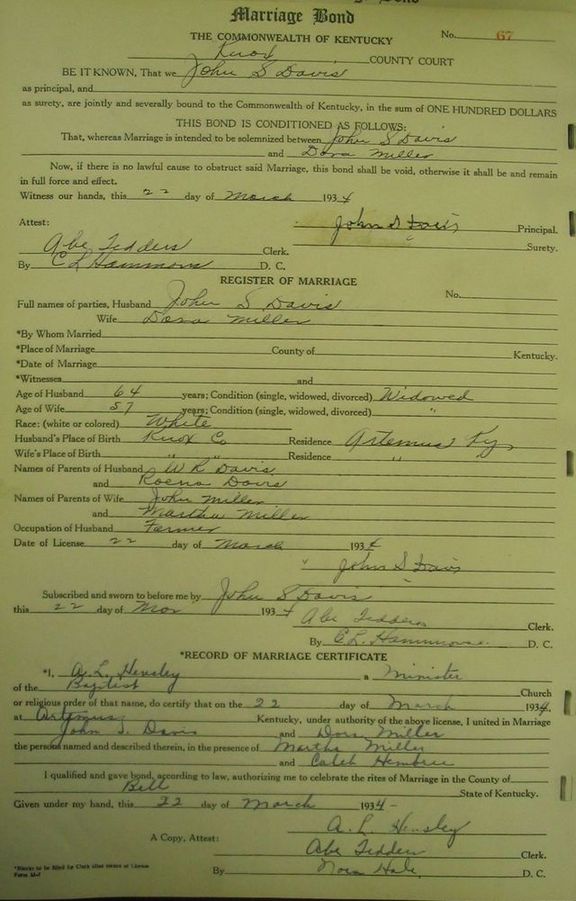 Marriage Bond
THE COMMONWEALTH OF KENTUCKY No. 67
Knox COUNTY COURT
BE IT KNOWN, That we John S Davis
as principal, and
as surety, are jointly and severally bound to the Commonwealth of Kentucky, in the sum of ONE HUNDRED DOLLARS
THIS BOND IS CONDITIONED AS FOLLOWS:
That, whereas Marriage is intended to be solemnized between John S Davis
and Dora Miller
Now, if there is no lawful cause to obstruct said Marriage, this bond shall be void, otherwise it shall be and remain
in full force and effect.
Witness our hands, this 22 day of March 1934
Attest: John S Davis Principal.
Abe Tedders Clerk. Surety.
By C L Hammons D. C.
REGISTER OF MARRIAGE
Full names of parties, Husband John S Davis No.
Wife Dora Miller
*By Whom Married
*Place of Marriage County of Kentucky.
*Date of Marriage
*Witnesses and
Age of Husband 64 years; Condition (single, widowed, divorced) Widowed
Age of Wife 57 years; Condition (single, widowed, divorced) "
Race: (white or colored) White
Husband's Place of Birth Knox Co Residence Artemus Ky
Wife's Place of Birth " " Residence "
Names of Parents of Husband W R Davis
and Roena Davis
Names of Parents of Wife John Miller
and Martha Miller
Occupation of Husband Farmer
Date of License 22 day of March 1934
John S Davis
Subscribed and sworn to before me by John S Davis
this 22 day of Mar 1934 Abe Tedders Clerk.
By C L Hammons D. C.
*RECORD OF MARRIAGE CERTIFICATE
*I, A. L. Hensley a Minister
of the Baptist Church
or religious order of that name, do certify that on the 22 day of March 1934.
at Artemus Kentucky, under authority of the above license, I united in Marriage
John S. Davis and Dora Miller
the persons named and described therein, in the presence of Martha Miller
and Caleb Hembree
I qualified and gave bond, according to law, authorizing me to celebrate the rites of Marriage in the County of
Bell State of Kentucky.
Given under my hand, this 22 day of March 1934-
A. L. Hensley
A Copy, Attest: Abe Tedders Clerk.
By Nora Hale D. C.
Form M-F